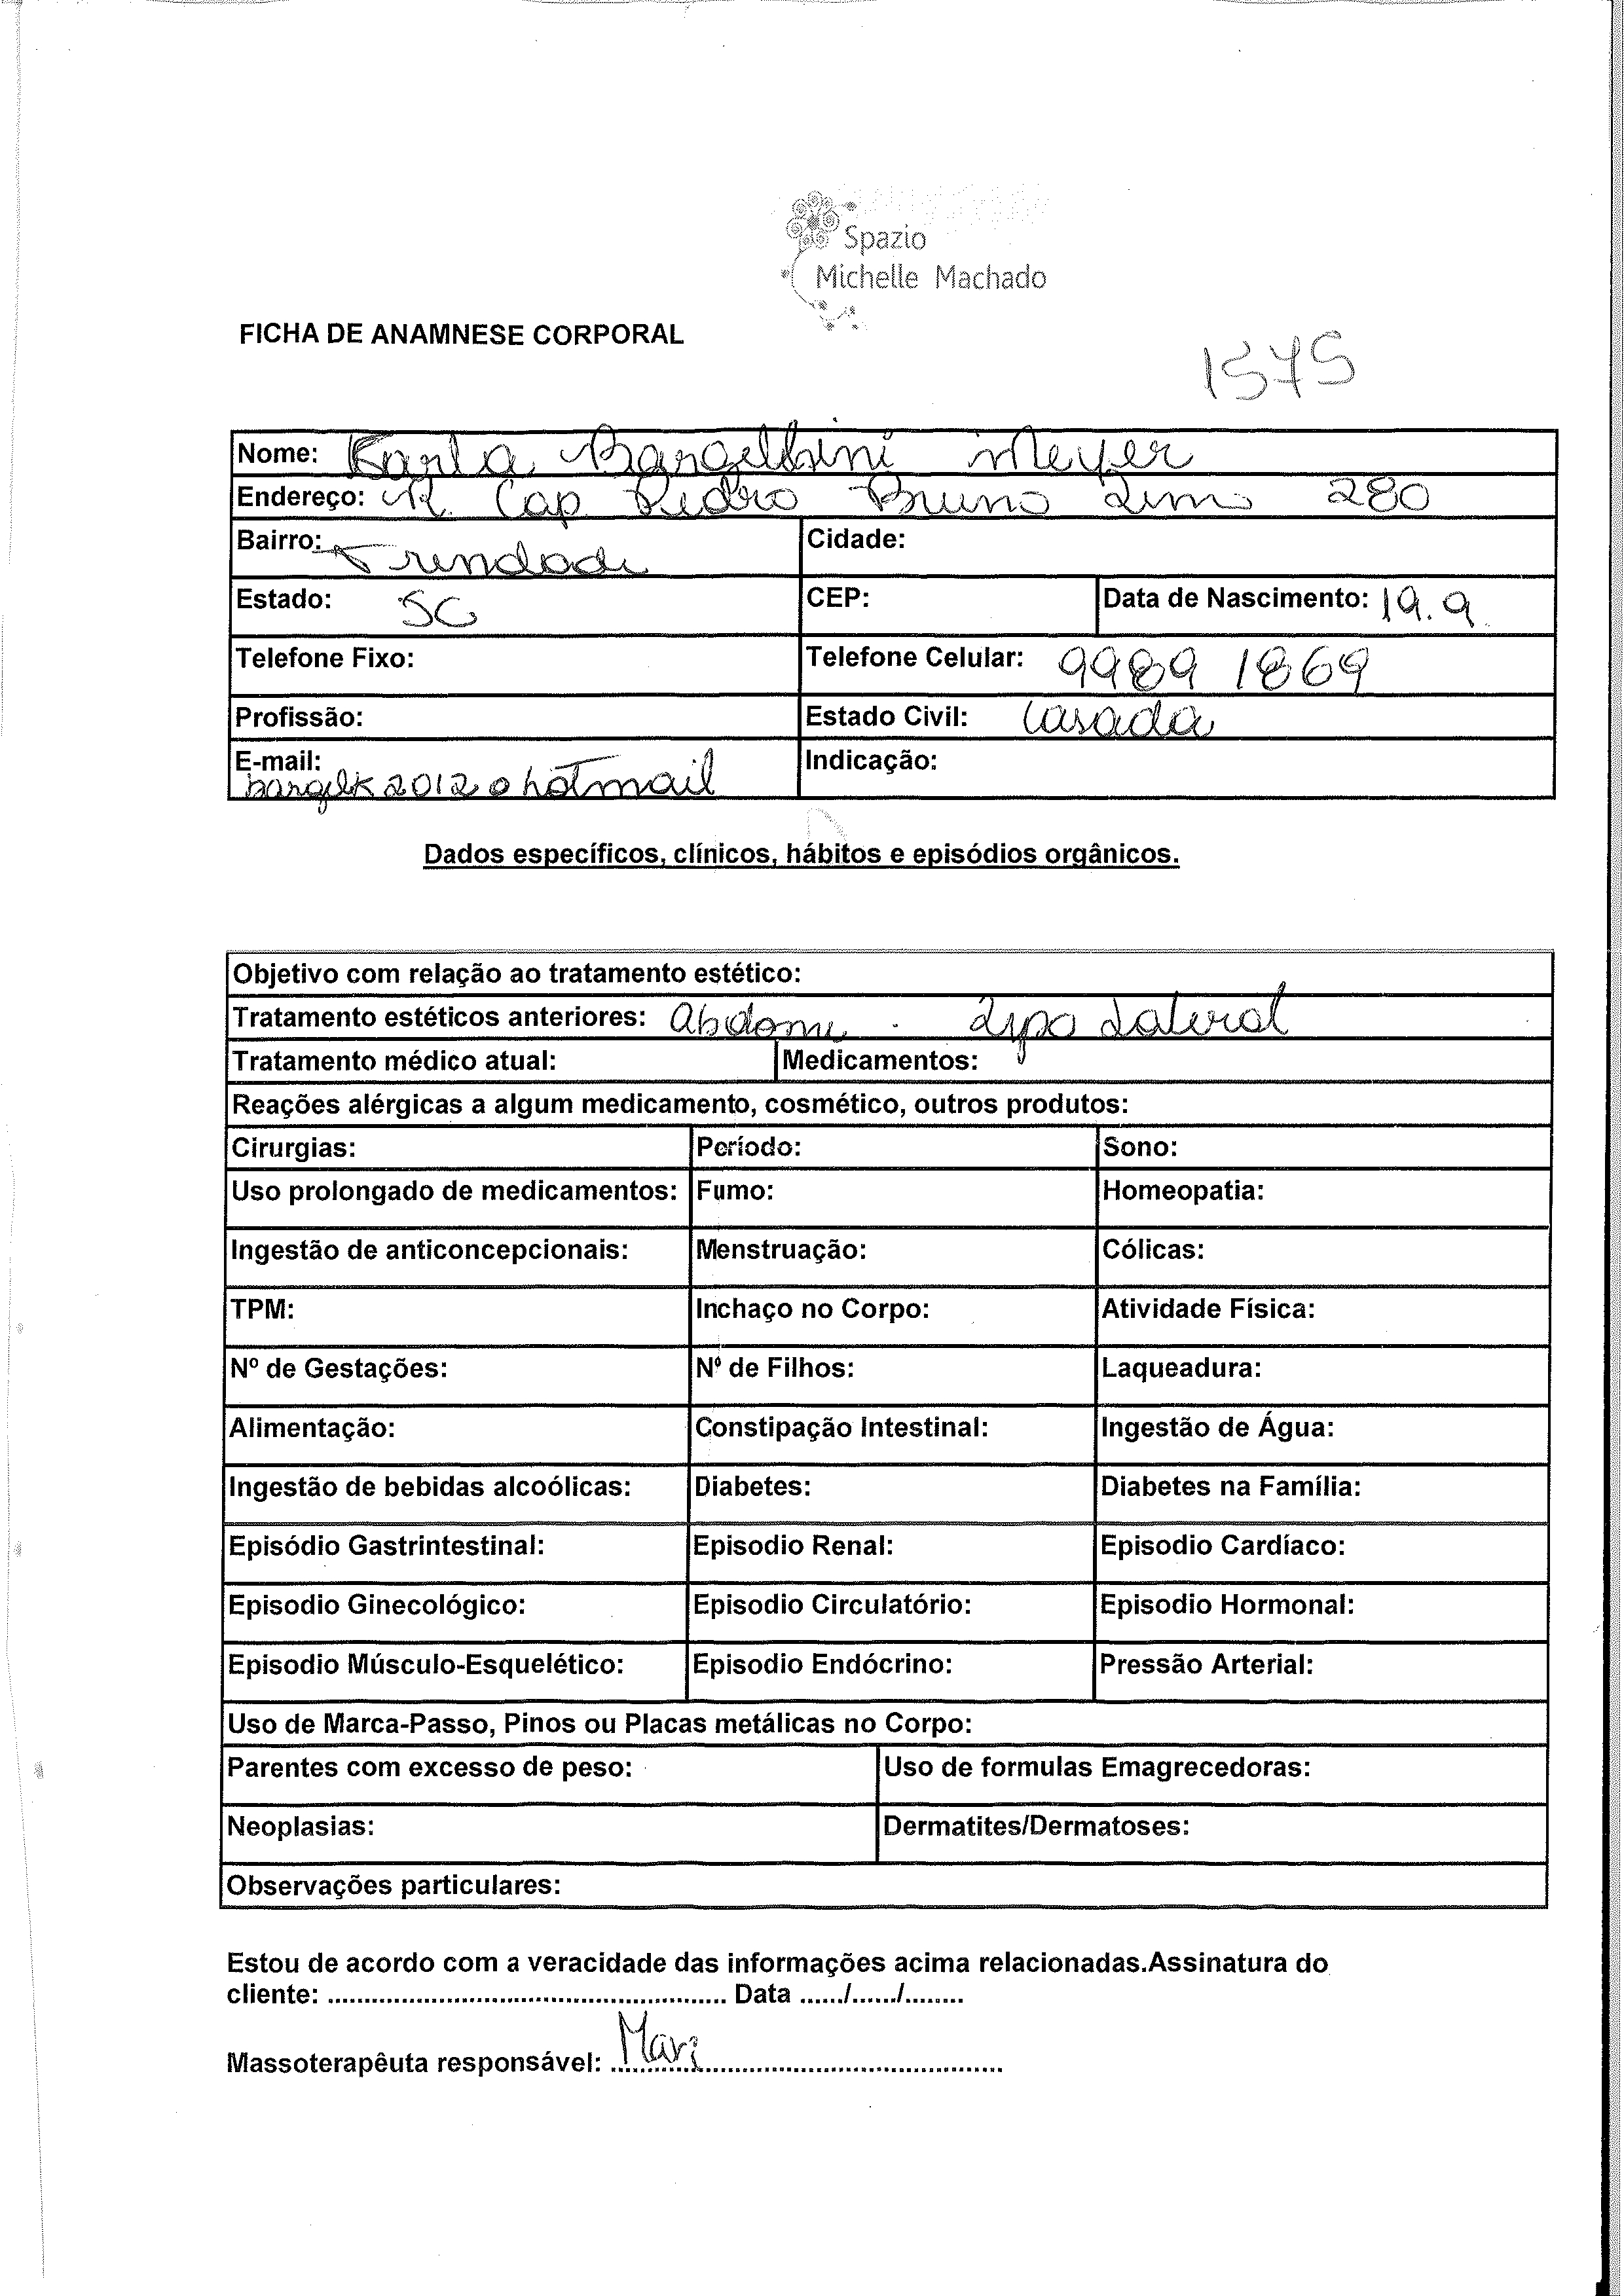 Spazio
Michelle Machado
FICHA DE ANAMNESE CORPORAL
1575
Nome: Karla Bargellini Meyer
Endereço: R. Cap Pedro Bruno Lima 280
Bairro: Trindade
Cidade:
Estado: SC
CEP:
Data de Nascimento: 19.9
Telefone Fixo:
Telefone Celular: 9989 1869
Profissão:
Estado Civil: Casada
E-mail:
Indicação:
hotmail
Dados específicos, clínicos, hábitos e episódios orgânicos.
Objetivo com relação ao tratamento estético:
Tratamento estéticos anteriores: Abdome . Lipo Lateral
Tratamento médico atual:
Medicamentos:
Reações alérgicas a algum medicamento, cosmético, outros produtos:
Cirurgias:
Período:
Sono:
Uso prolongado de medicamentos:
Fumo:
Homeopatia:
Ingestão de anticoncepcionais:
Menstruação:
Cólicas:
TPM:
Inchaço no Corpo:
Atividade Física:
Nº de Gestações:
Nº de Filhos:
Laqueadura:
Alimentação:
Constipação Intestinal:
Ingestão de Água:
Ingestão de bebidas alcoólicas:
Diabetes:
Diabetes na Família:
Episódio Gastrintestinal:
Episodio Renal:
Episodio Cardíaco:
Episodio Ginecológico:
Episodio Circulatório:
Episodio Hormonal:
Episodio Músculo-Esquelético:
Episodio Endócrino:
Pressão Arterial:
Uso de Marca-Passo, Pinos ou Placas metálicas no Corpo:
Parentes com excesso de peso:
Uso de formulas Emagrecedoras:
Neoplasias:
Dermatites/Dermatoses:
Observações particulares:
Estou de acordo com a veracidade das informações acima relacionadas.Assinatura do
cliente: ...................................................... Data ....../....../........
Massoterapêuta responsável: Mari